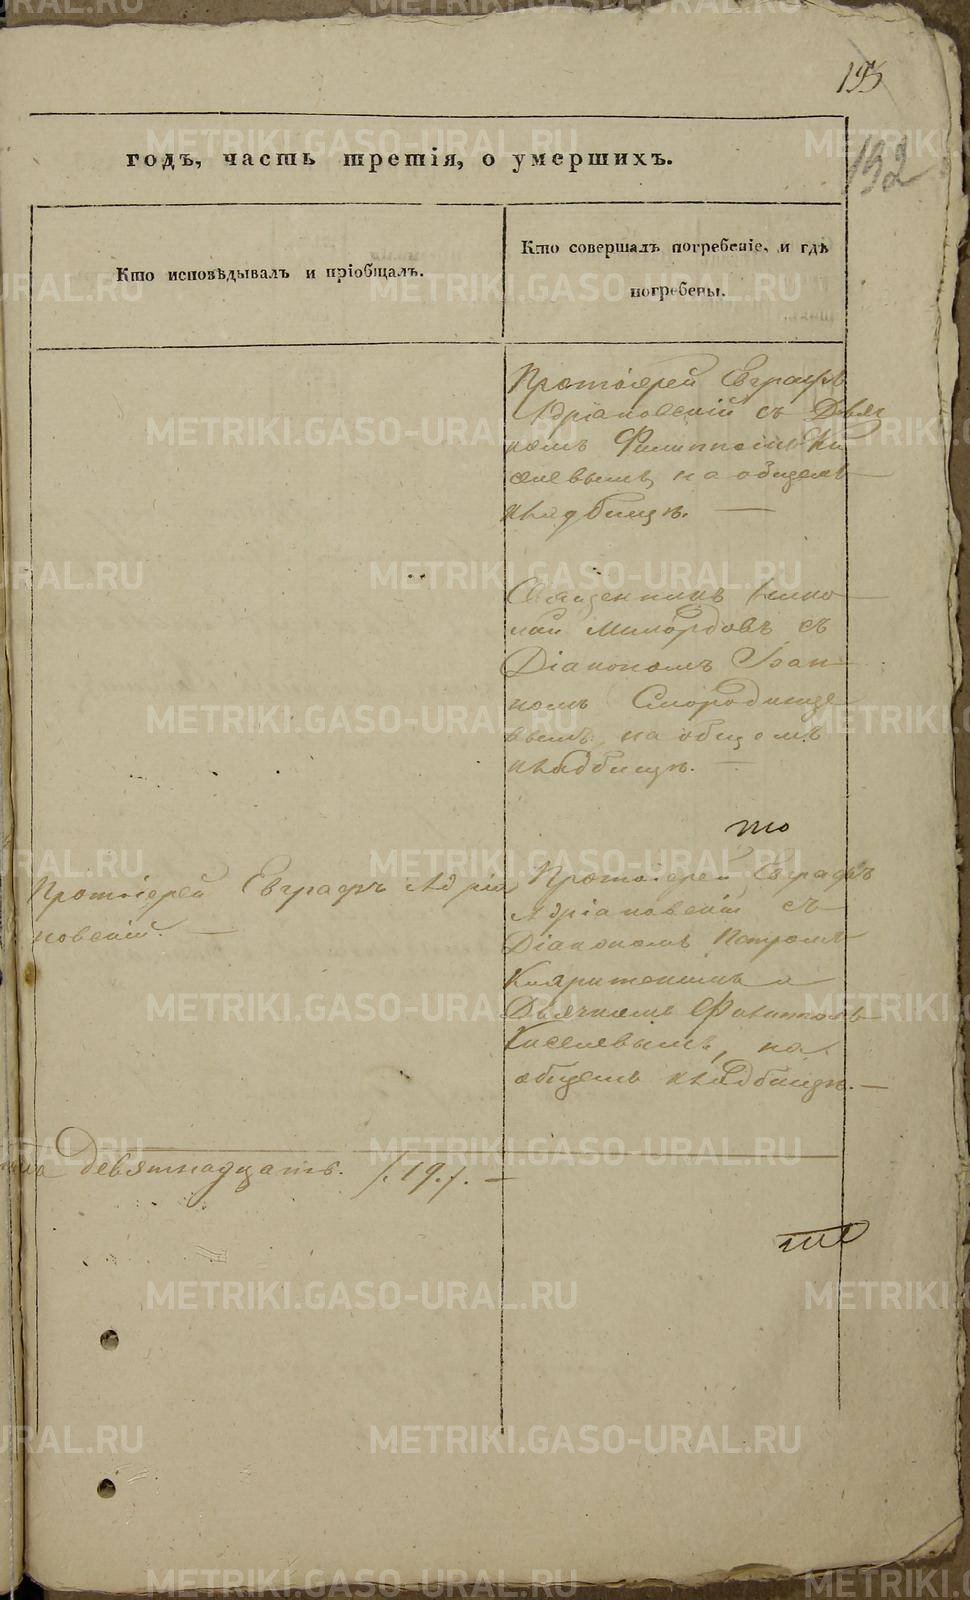 193
132
годъ, часть третія, о умершихъ.
Кто исповѣдывалъ и пріобщалъ.
Кто совершалъ погребеніе, и гдѣ
погребены.
Протоіерей Евграфъ
Адріановскій съ Дьяч
комъ Филиппомъ Ки
селевымъ, на общемъ
кладбищѣ. —
Священникъ Нико
лай Милордовъ съ
Діакономъ Іоан
номъ Смородинце
вымъ, на общемъ
кладбищѣ. —
то
Протоіерей Евграфъ Адріа
новскій. —
Протоіерей Евграфъ
Адріановскій съ
Діакономъ Петромъ
и
Дьячкомъ Филиппомъ
Киселевымъ, на
общемъ кладбищѣ. —
девятнадцать. /.19./. —
METRIKI.GASO-URAL.RU